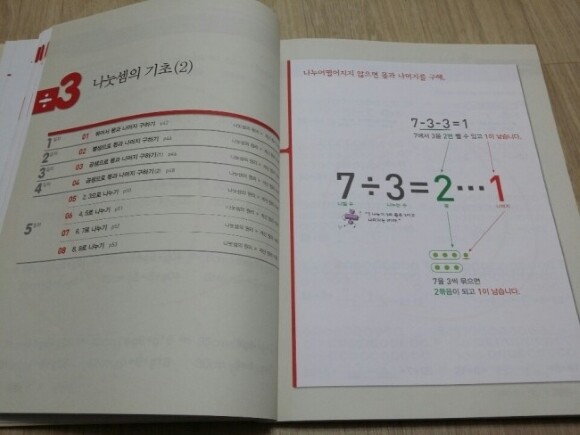 ÷3 나눗셈의 기초(2)
1일차 01 묶어서 몫과 나머지 구하기
2일차 02 뺄셈으로 몫과 나머지 구하기
3일차 03 곱셈으로 몫과 나머지 구하기(1)
4일차 04 곱셈으로 몫과 나머지 구하기(2)
05 2, 3으로 나누기
5일차 06 4, 5로 나누기
07 6, 7로 나누기
08 8, 9로 나누기
나누어떨어지지 않으면 몫과 나머지를 구해.
7-3-3=1
7에서 3을 2번 뺄 수 있고 1이 남습니다.
7÷3=2···1
나눌 수 나누는 수 몫 나머지
7을 3씩 묶으면
2묶음이 되고 1이 남습니다.